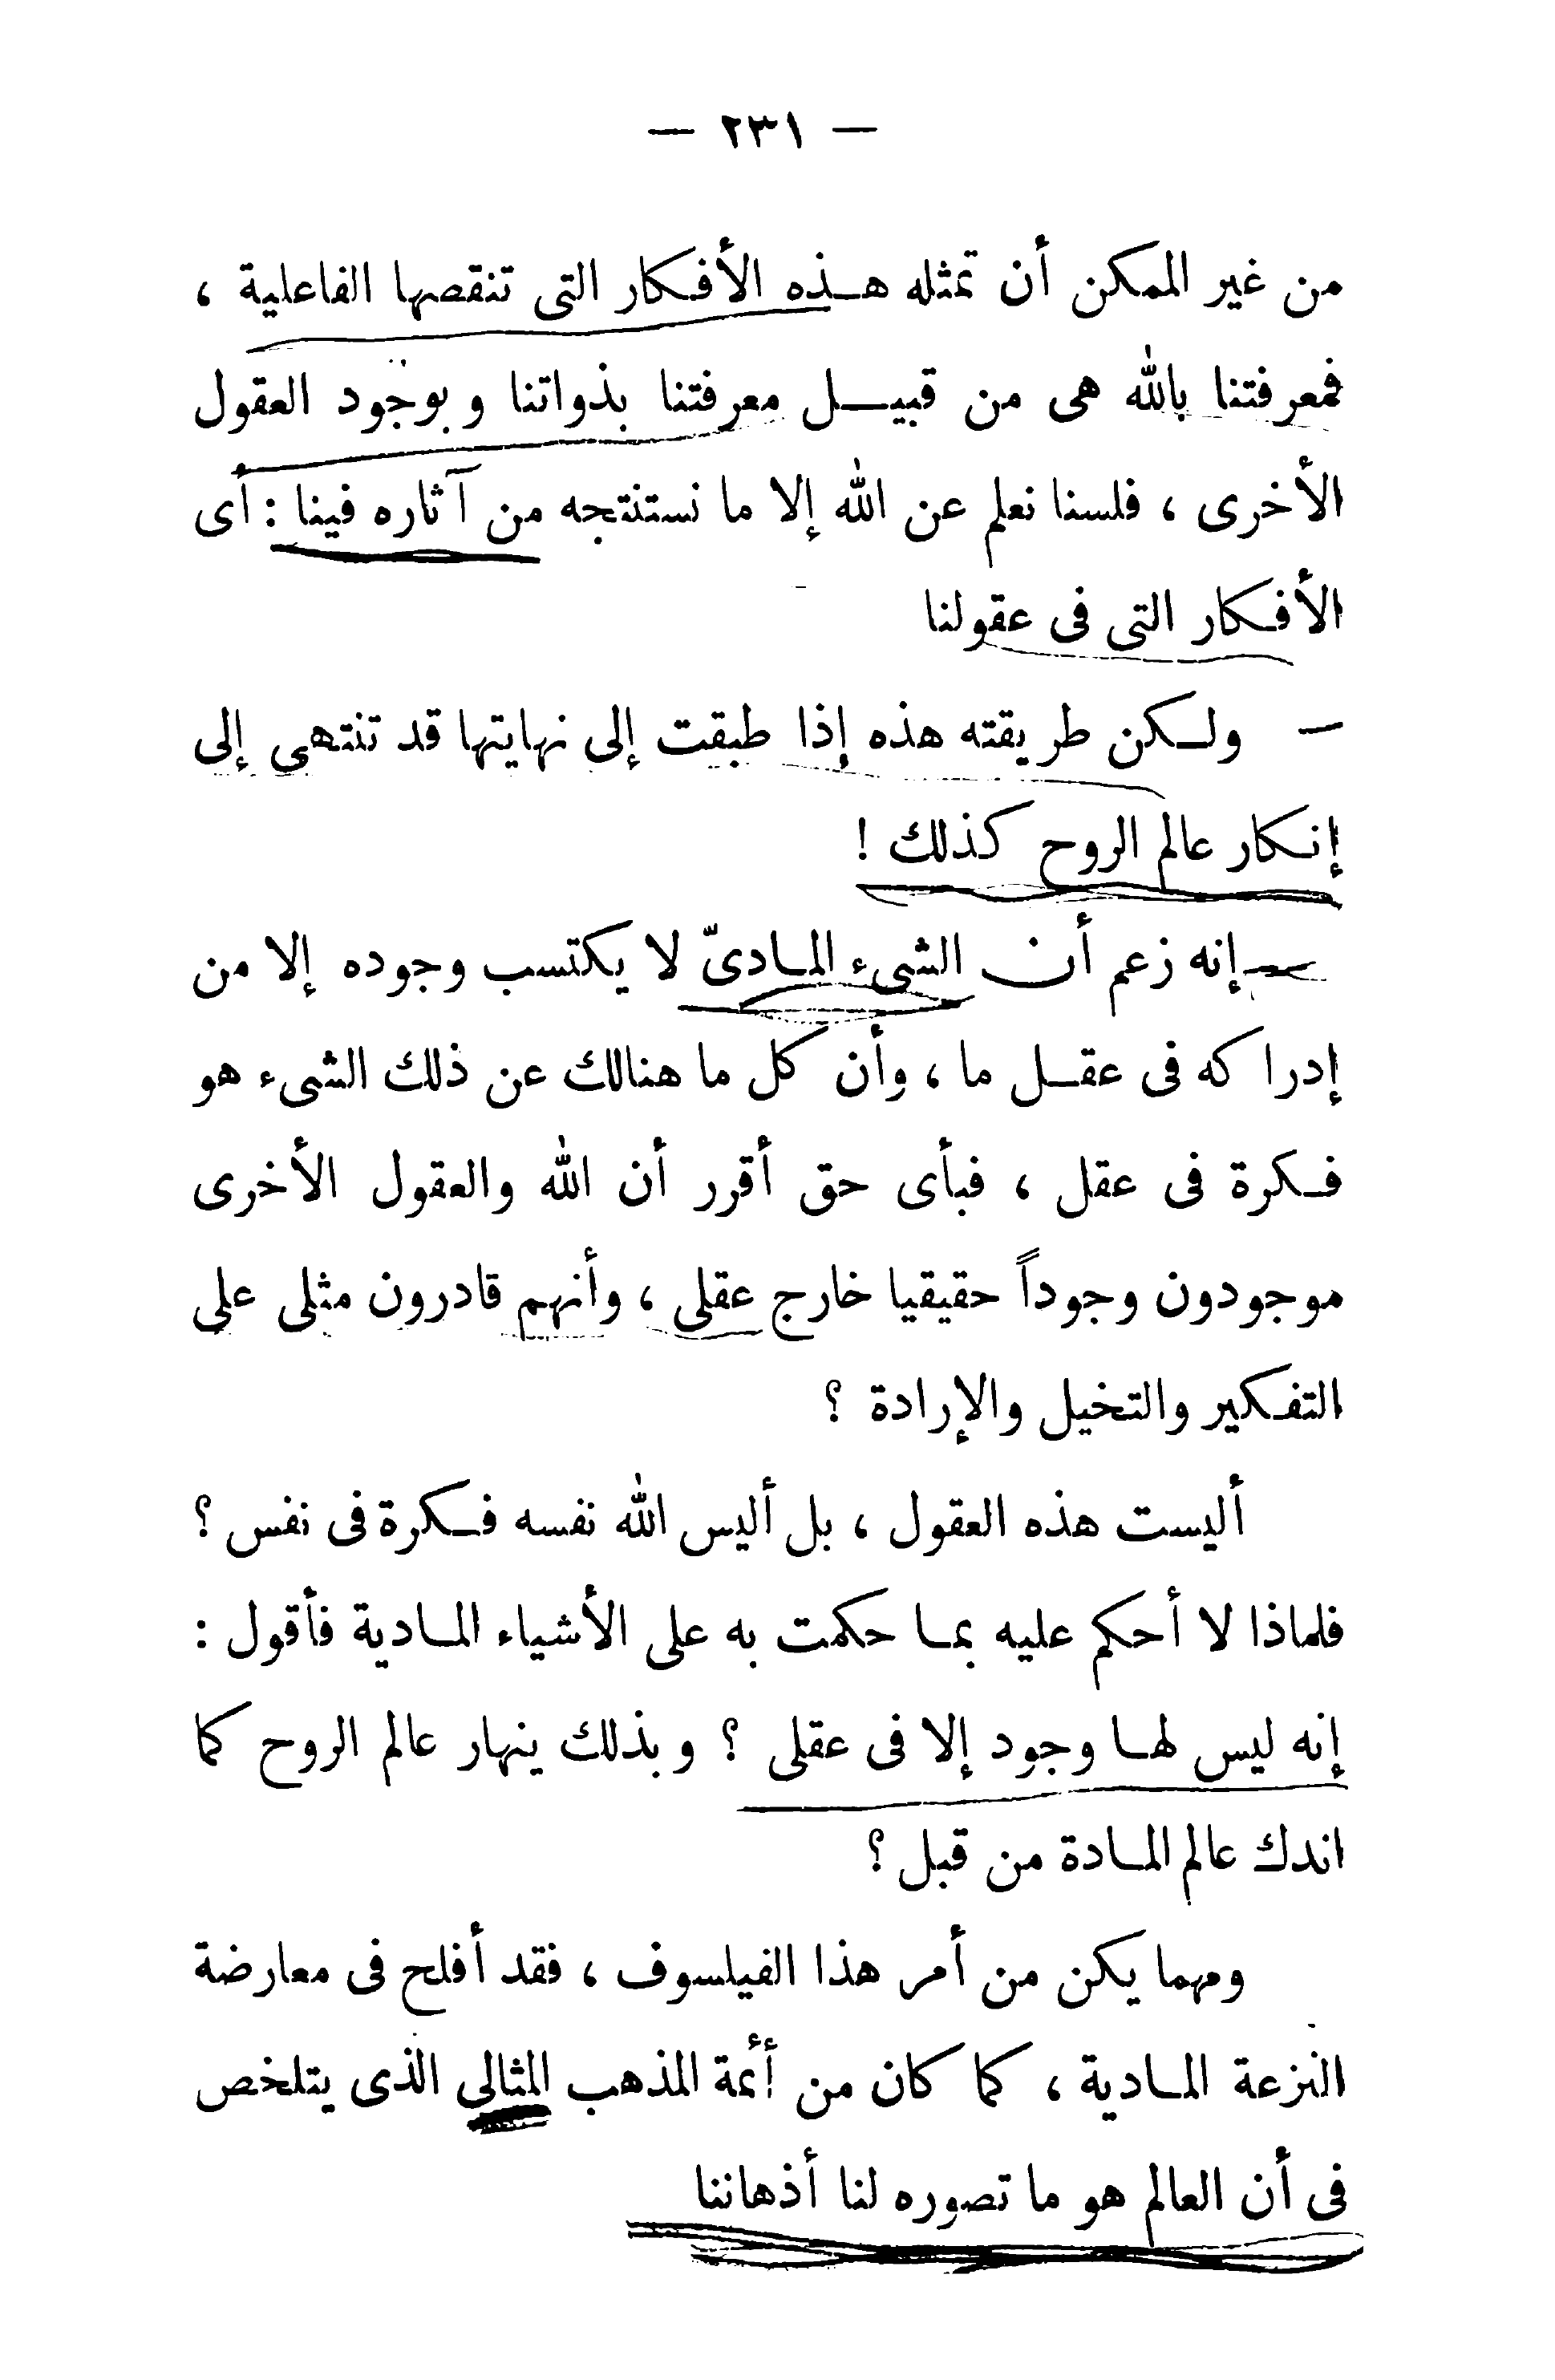 — ٢٣١ —
من غير الممكن أن تمثله هذه الأفكار التى تنقصها الفاعلية ،
فمعرفتنا بالله هى من قبيل معرفتنا بذواتنا وبوجود العقول
الأخرى ، فلسنا نعلم عن الله إلا ما نستنتجه من آثاره فينا : أى
الأفكار التى فى عقولنا
— ولكن طريقته هذه إذا طبقت إلى نهايتها قد تنتهى إلى
إنكار عالم الروح كذلك !
إنه زعم أن الشىء المادىّ لا يكتسب وجوده إلا من
إدراكه فى عقل ما ، وأن كل ما هنالك عن ذلك الشىء هو
فكرة فى عقل ، فبأى حق أقرر أن الله والعقول الأخرى
موجودون وجوداً حقيقيا خارج عقلى ، وأنهم قادرون مثلى على
التفكير والتخيل والإرادة ؟
أليست هذه العقول ، بل أليس الله نفسه فكرة فى نفس ؟
فلماذا لا أحكم عليه بما حكمت به على الأشياء المادية فأقول :
إنه ليس لها وجود إلا فى عقلى ؟ وبذلك ينهار عالم الروح كما
اندك عالم المادة من قبل ؟
ومهما يكن من أمر هذا الفيلسوف ، فقد أفلح فى معارضة
النزعة المادية ، كما كان من أئمة المذهب المثالي الذى يتلخص
فى أن العالم هو ما تصوره لنا أذهاننا